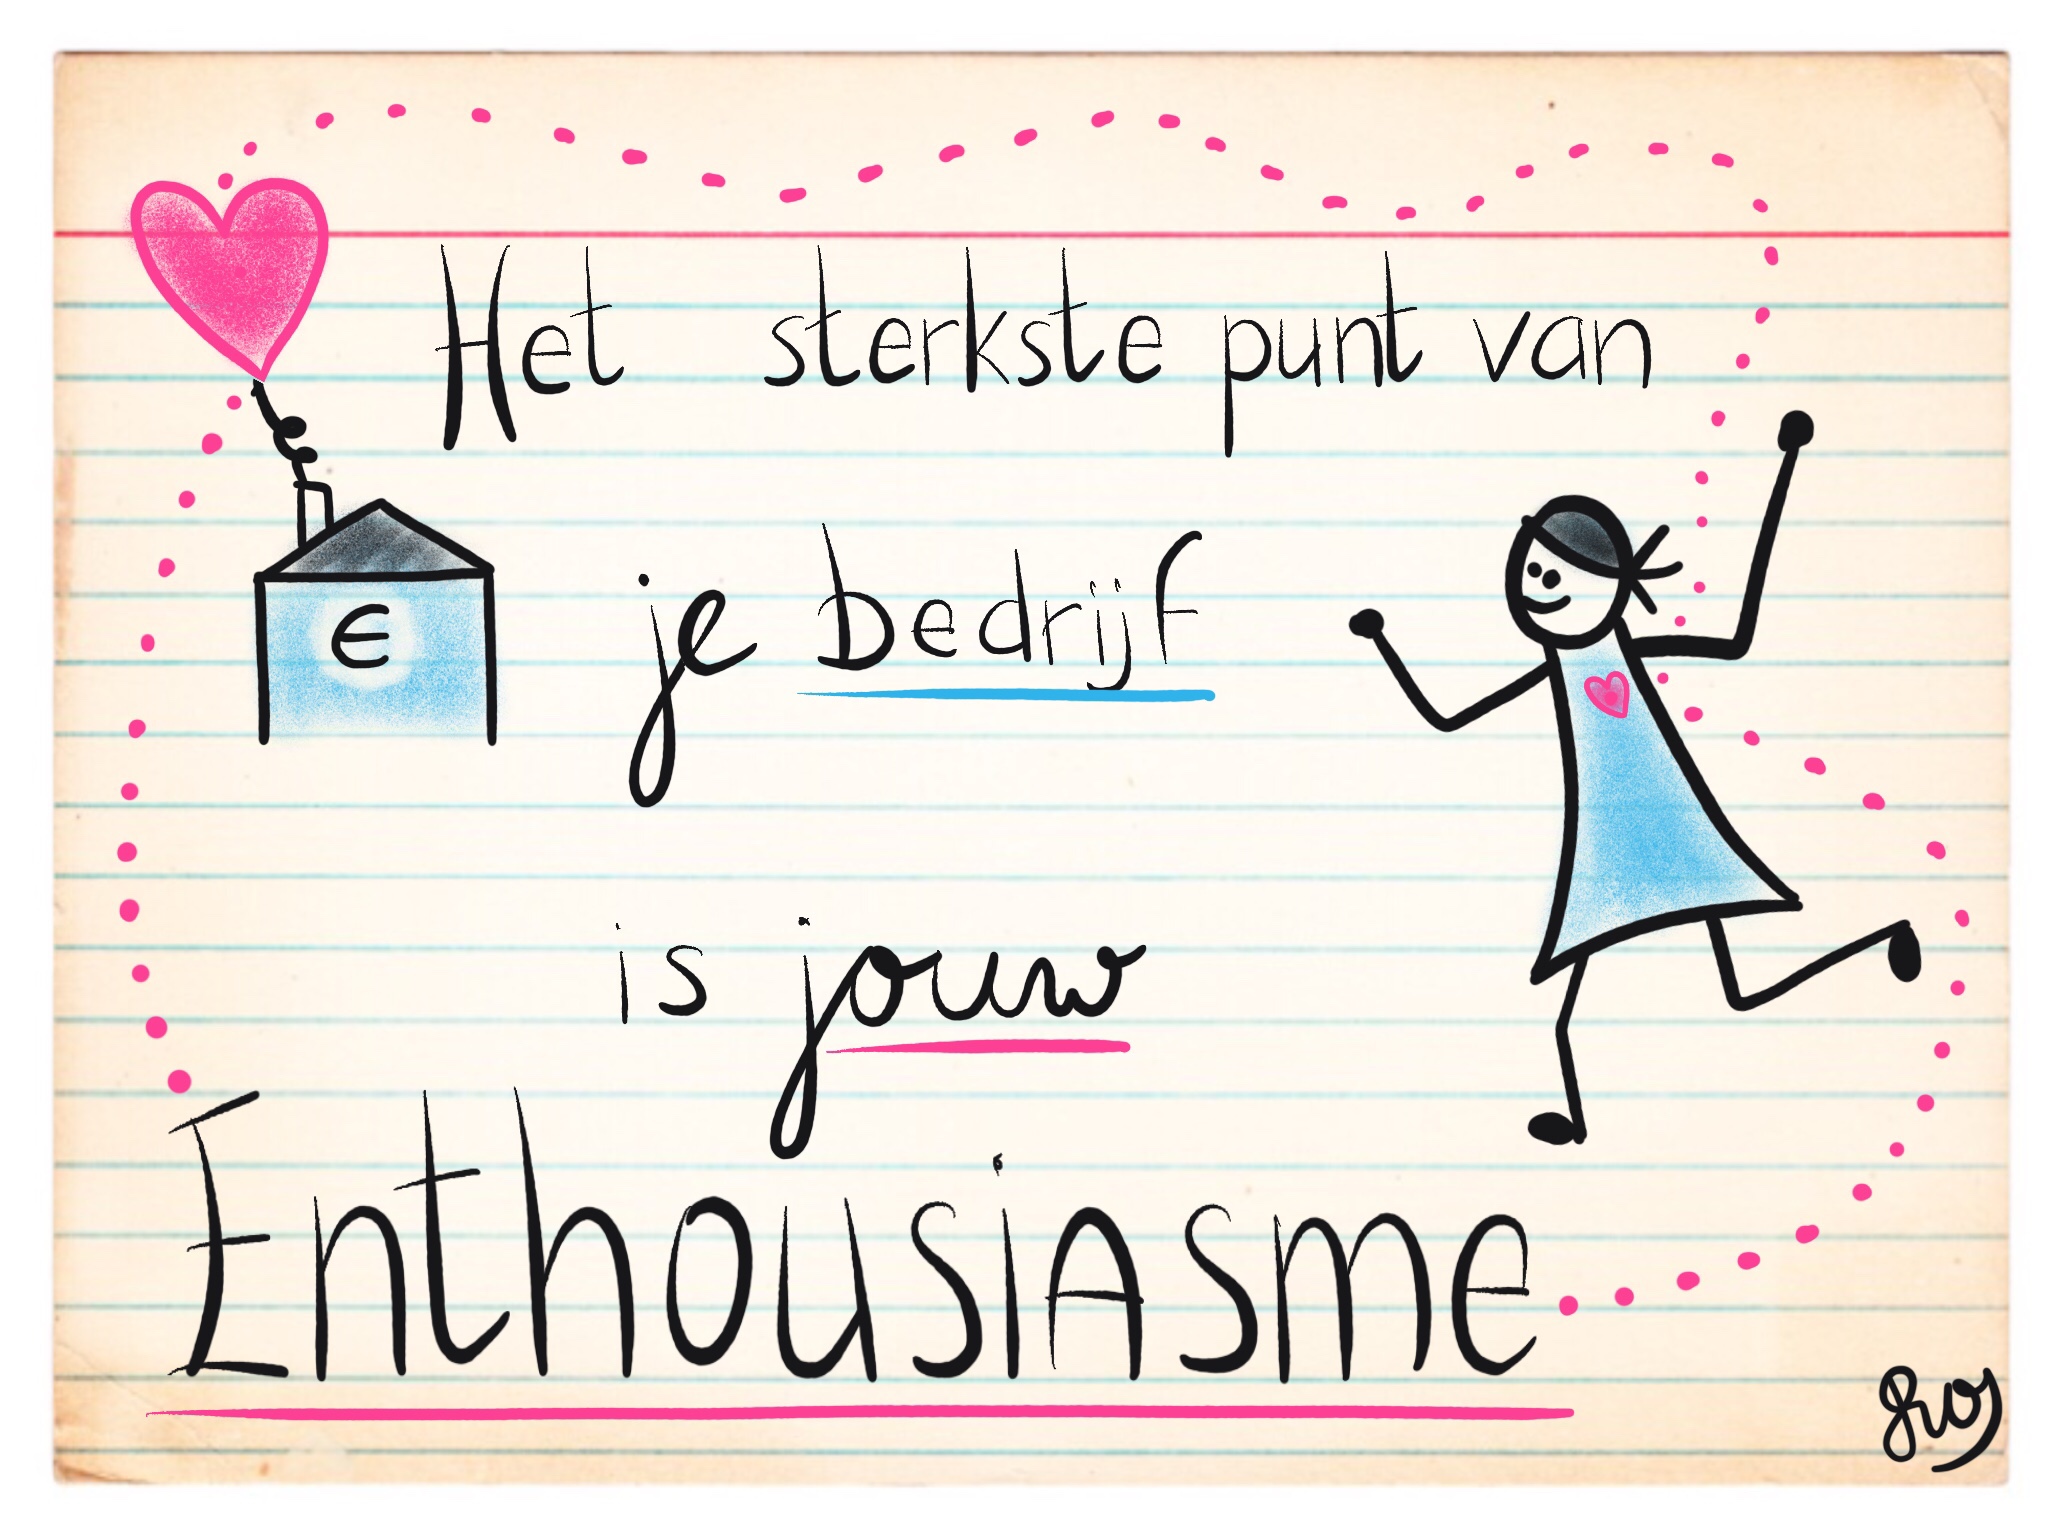 Het sterkste punt van
€
je bedrijf
is jouw
Enthousiasme
Ros